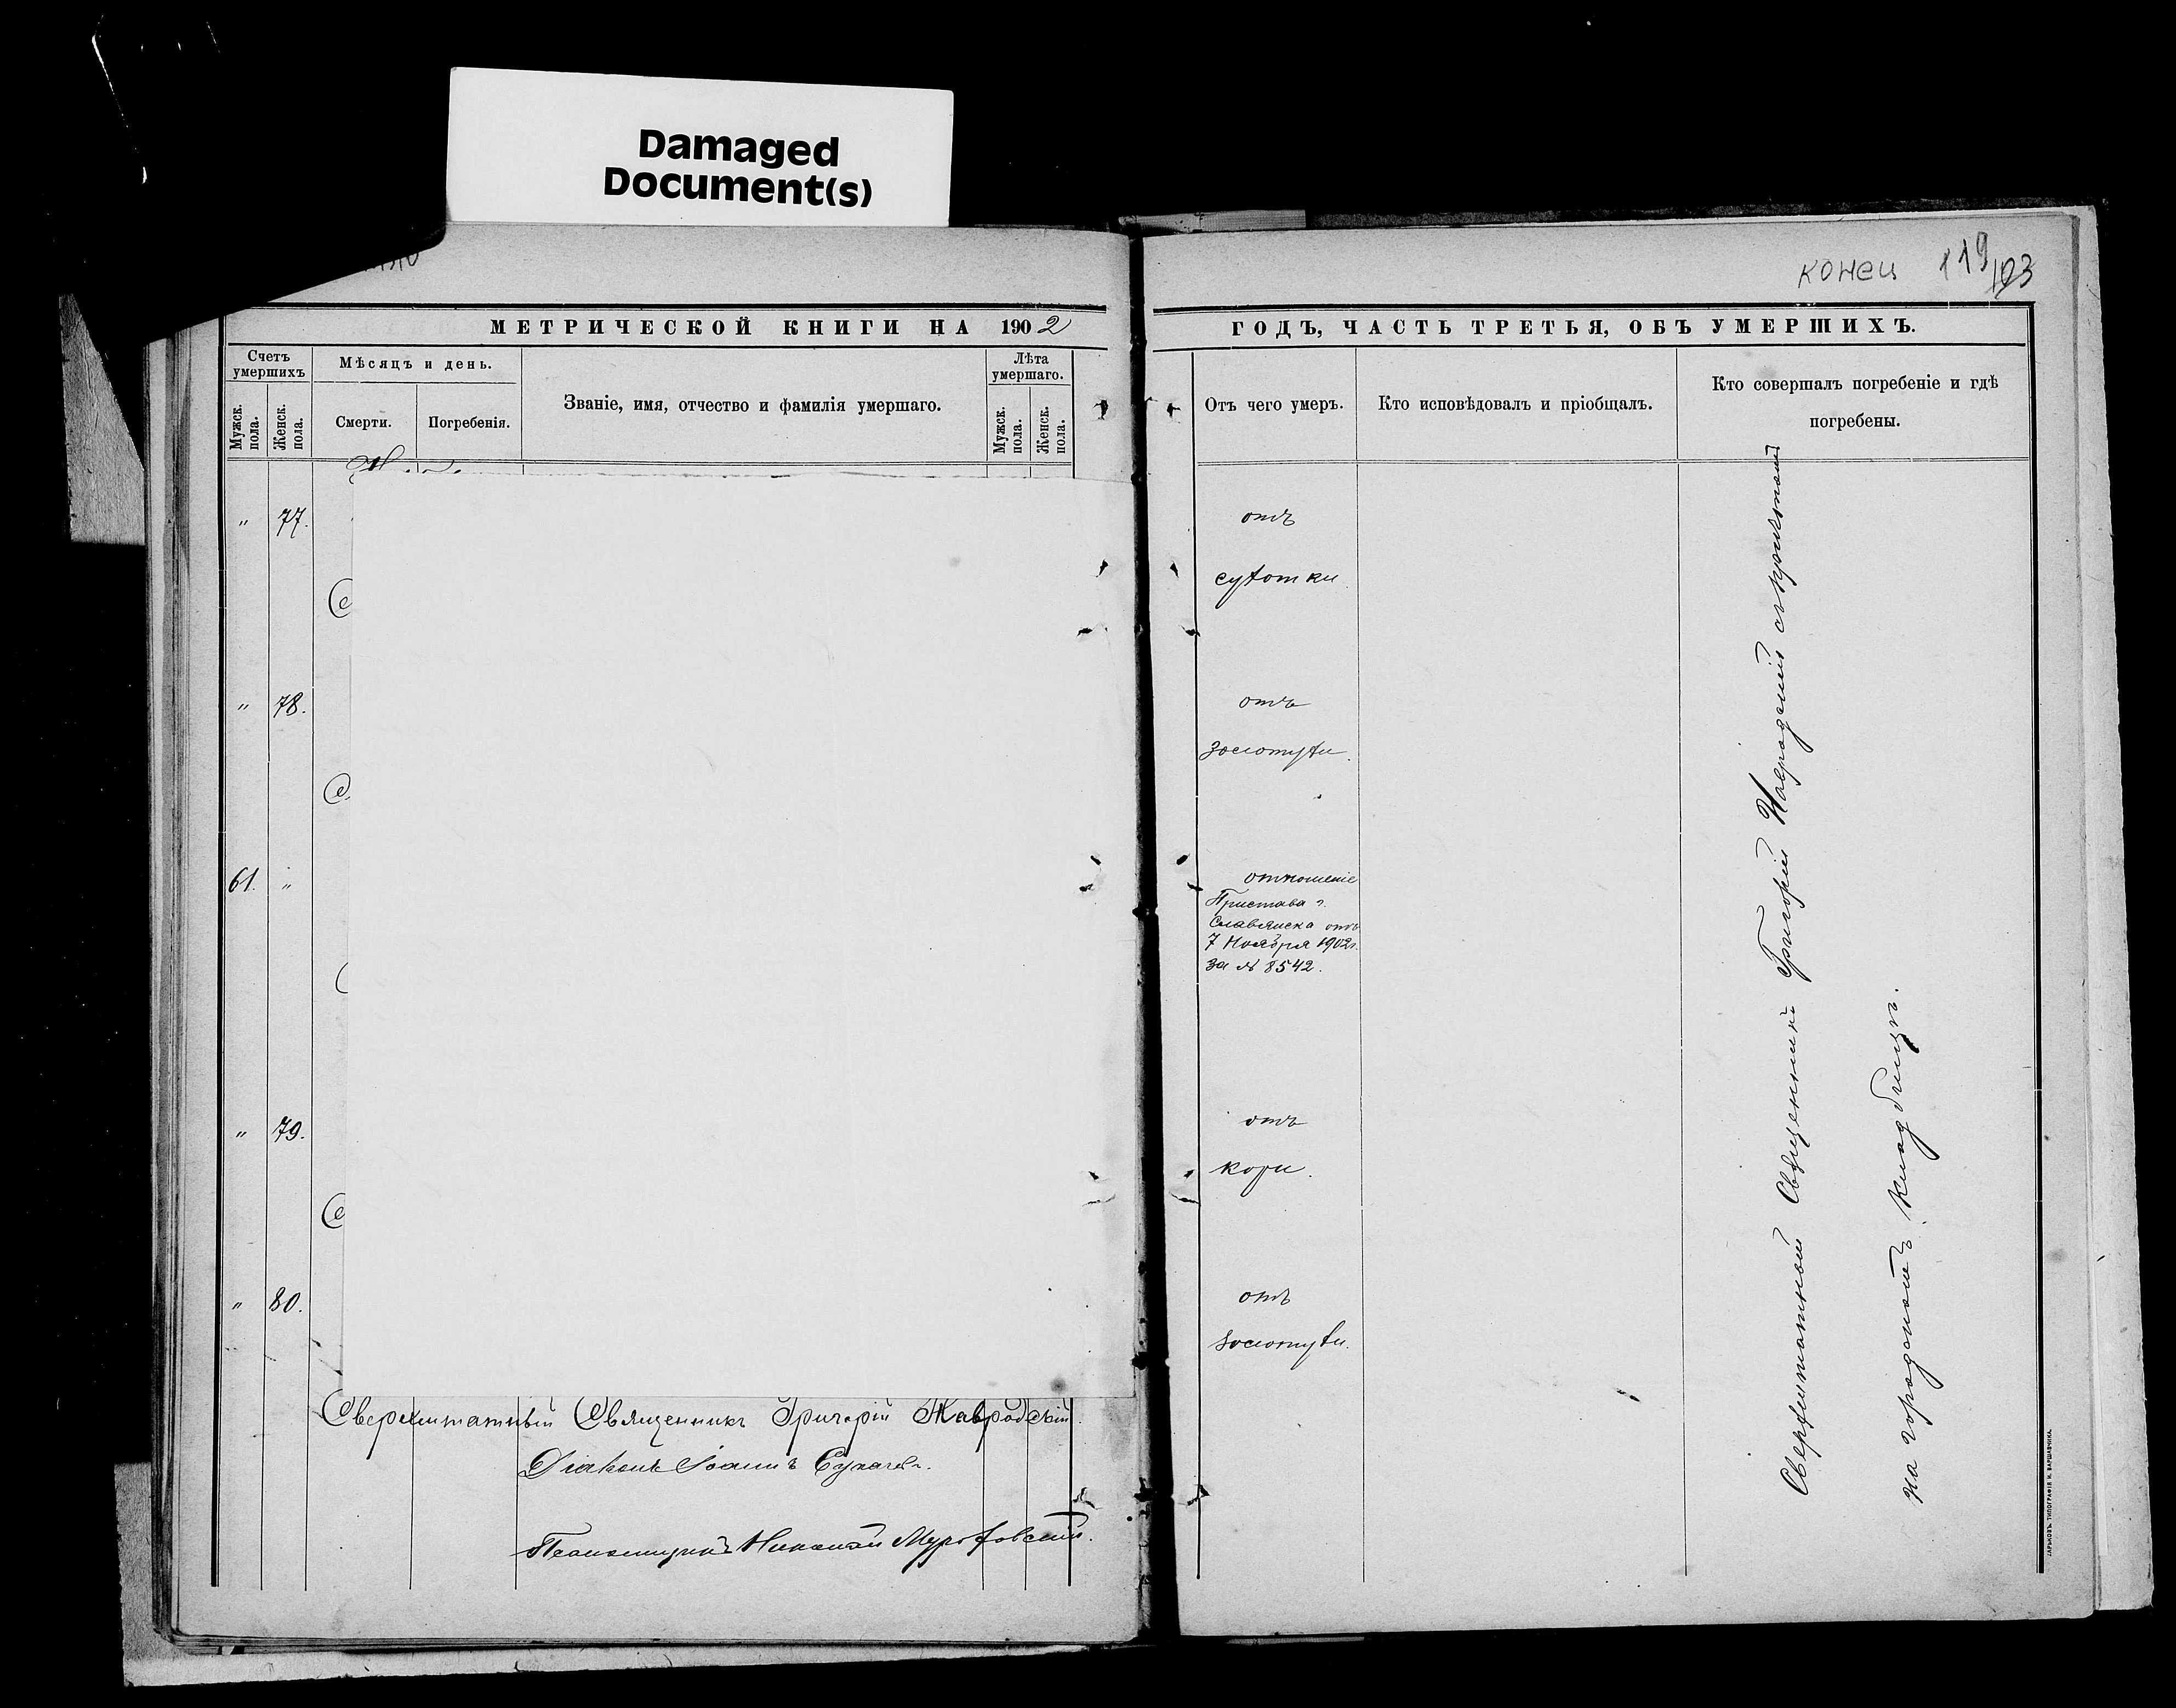 Damaged
Document(s)
МЕТРИЧЕСКОЙ КНИГИ НА 1902
Счетъ умершихъ
Мѣсяцъ и день.
Званіе, имя, отчество и фамилія умершаго.
Лѣта умершаго.
Мужск. пола.
Женск. пола.
Смерти.
Погребенія.
Мужск. пола.
Женск. пола.
" 77.
" 78.
61. "
" 79.
" 80.
Сверхштатный Священникъ Григорій Навродскій.
Діаконъ Іоаннъ
Псаломщикъ Николай
конец 119
103
ГОДЪ, ЧАСТЬ ТРЕТЬЯ, ОБЪ УМЕРШИХЪ.
Отъ чего умеръ.
Кто исповѣдовалъ и пріобщалъ.
Кто совершалъ погребеніе и гдѣ
погребены.
отъ
сухотки
отъ
золотухи.
отношеніе
Пристава г.
Славянска отъ
7 Ноября 1902 г.
за № 8542.
отъ
кори.
отъ
золотухи.
Сверхштатный Священникъ Григорій Навродскій съ причтомъ
на городскомъ кладбищѣ.
ХАРЬКОВЪ. ТИПОГРАФІЯ И. ВАРШАВЧИКА.